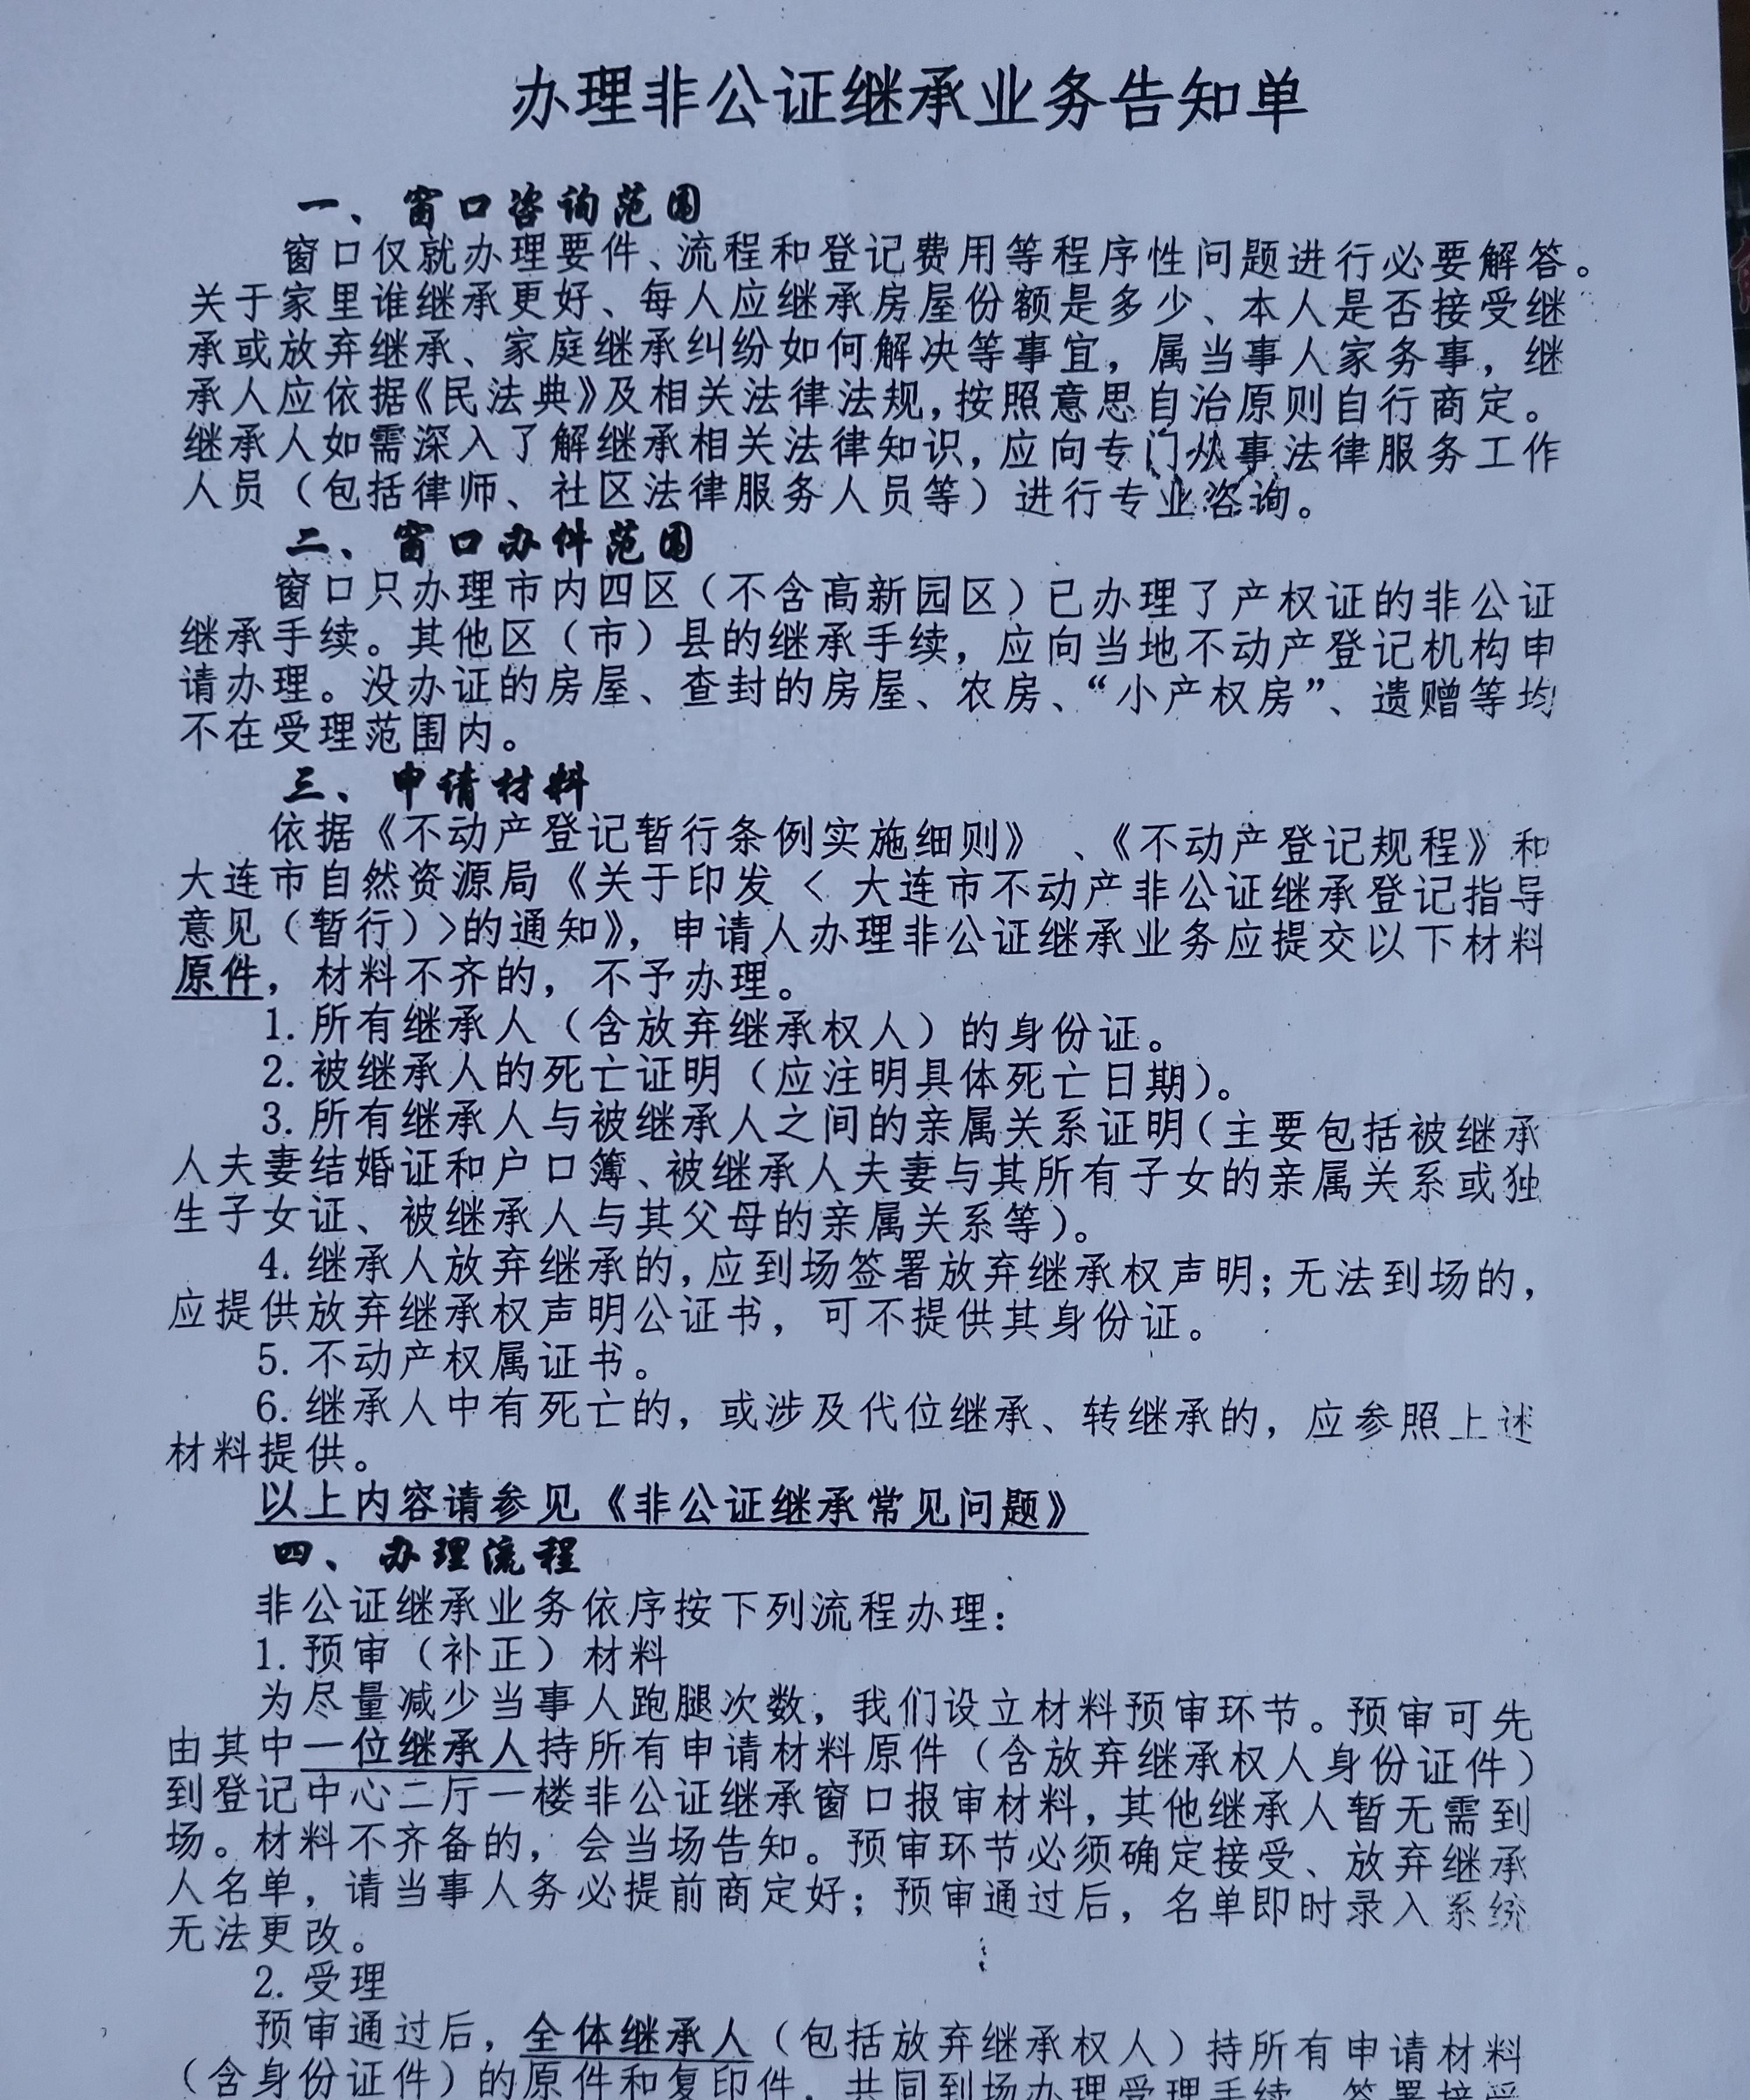 办理非公证继承业务告知单
一、窗口咨询范围
窗口仅就办理要件、流程和登记费用等程序性问题进行必要解答。
关于家里谁继承更好、每人应继承房屋份额是多少、本人是否接受继
承或放弃继承、家庭继承纠纷如何解决等事宜，属当事人家务事，继
承人应依据《民法典》及相关法律法规，按照意思自治原则自行商定。
继承人如需深入了解继承相关法律知识，应向专门从事法律服务工作
人员（包括律师、社区法律服务人员等）进行专业咨询。
二、窗口办件范围
窗口只办理市内四区（不含高新园区）已办理了产权证的非公证
继承手续。其他区（市）县的继承手续，应向当地不动产登记机构申
请办理。没办证的房屋、查封的房屋、农房、“小产权房”、遗赠等均
不在受理范围内。
三、申请材料
依据《不动产登记暂行条例实施细则》、《不动产登记规程》和
大连市自然资源局《关于印发<大连市不动产非公证继承登记指导
意见（暂行）>的通知》，申请人办理非公证继承业务应提交以下材料
原件，材料不齐的，不予办理。
1.所有继承人（含放弃继承权人）的身份证。
2.被继承人的死亡证明（应注明具体死亡日期）。
3.所有继承人与被继承人之间的亲属关系证明（主要包括被继承
人夫妻结婚证和户口簿、被继承人夫妻与其所有子女的亲属关系或独
生子女证、被继承人与其父母的亲属关系等）。
4.继承人放弃继承的，应到场签署放弃继承权声明；无法到场的，
应提供放弃继承权声明公证书，可不提供其身份证。
5.不动产权属证书。
6.继承人中有死亡的，或涉及代位继承、转继承的，应参照上述
材料提供。
以上内容请参见《非公证继承常见问题》
四、办理流程
非公证继承业务依序按下列流程办理：
1.预审（补正）材料
为尽量减少当事人跑腿次数，我们设立材料预审环节。预审可先
由其中一位继承人持所有申请材料原件（含放弃继承权人身份证件）
到登记中心二厅一楼非公证继承窗口报审材料，其他继承人暂无需到
场。材料不齐备的，会当场告知。预审环节必须确定接受、放弃继承
人名单，请当事人务必提前商定好；预审通过后，名单即时录入系统
无法更改。
2.受理
预审通过后，全体继承人（包括放弃继承权人）持所有申请材料
（含身份证件）的原件和复印件，共同到场办理受理手续，签署接受